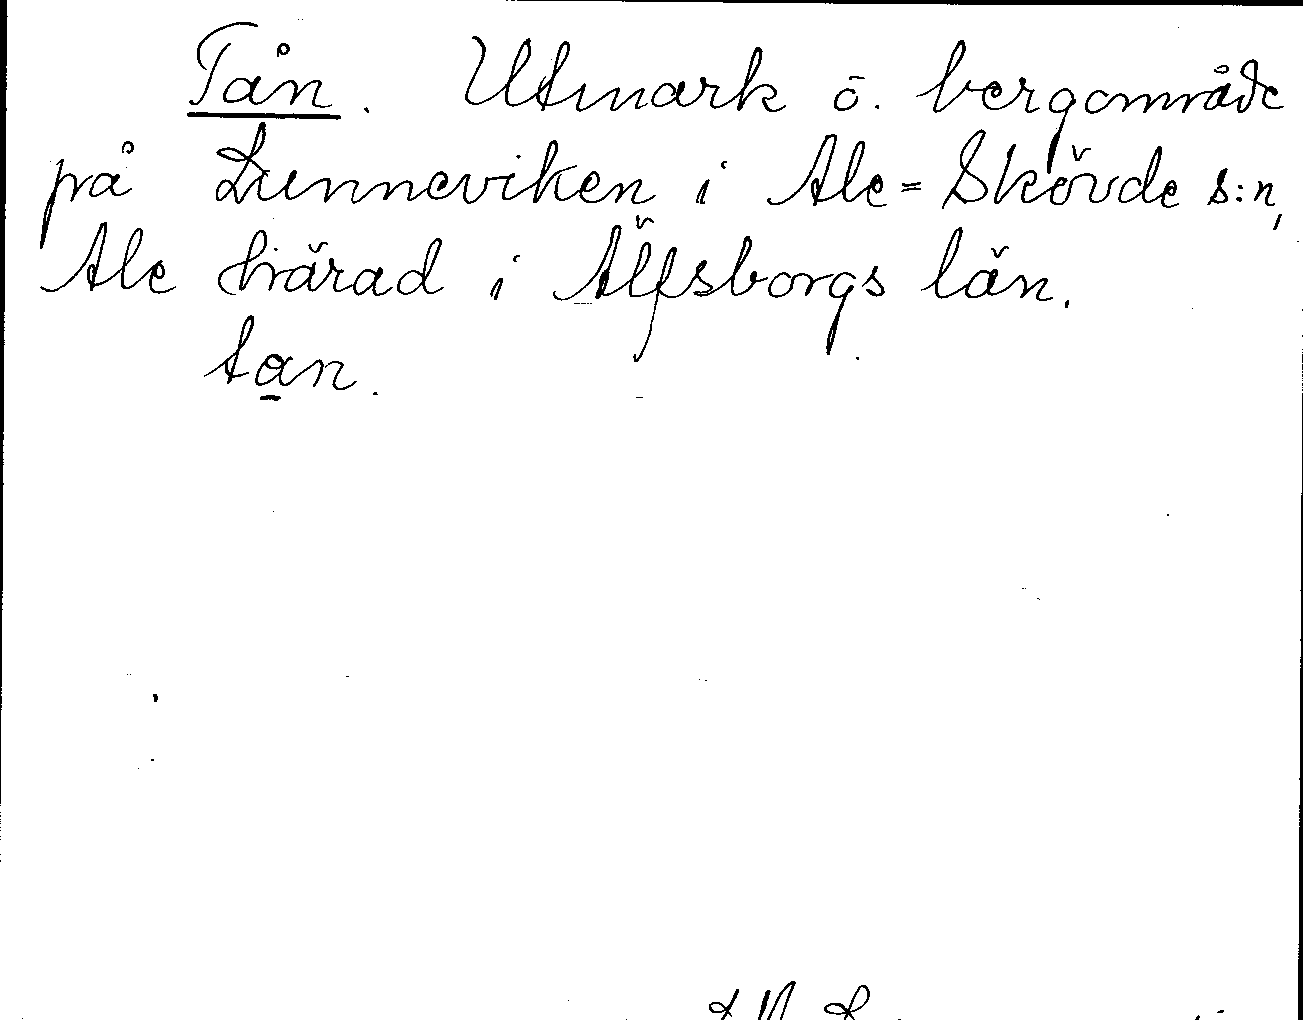 Tån. Utmark o. bergområde
på Lunneviken i Ale=Skövde s:n,
Ale härad i Älfsborgs län.
tan.